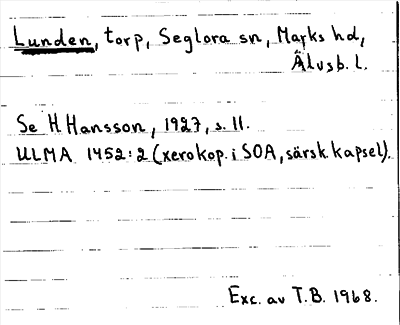 Lunden, torp, Seglora sn, Marks hd,
Älvsb. l.
Se H Hansson, 1927, s. 11.
ULMA 1452:2 (xerokop. i SOA, särsk. kapsel).
Exc. av T.B. 1968.